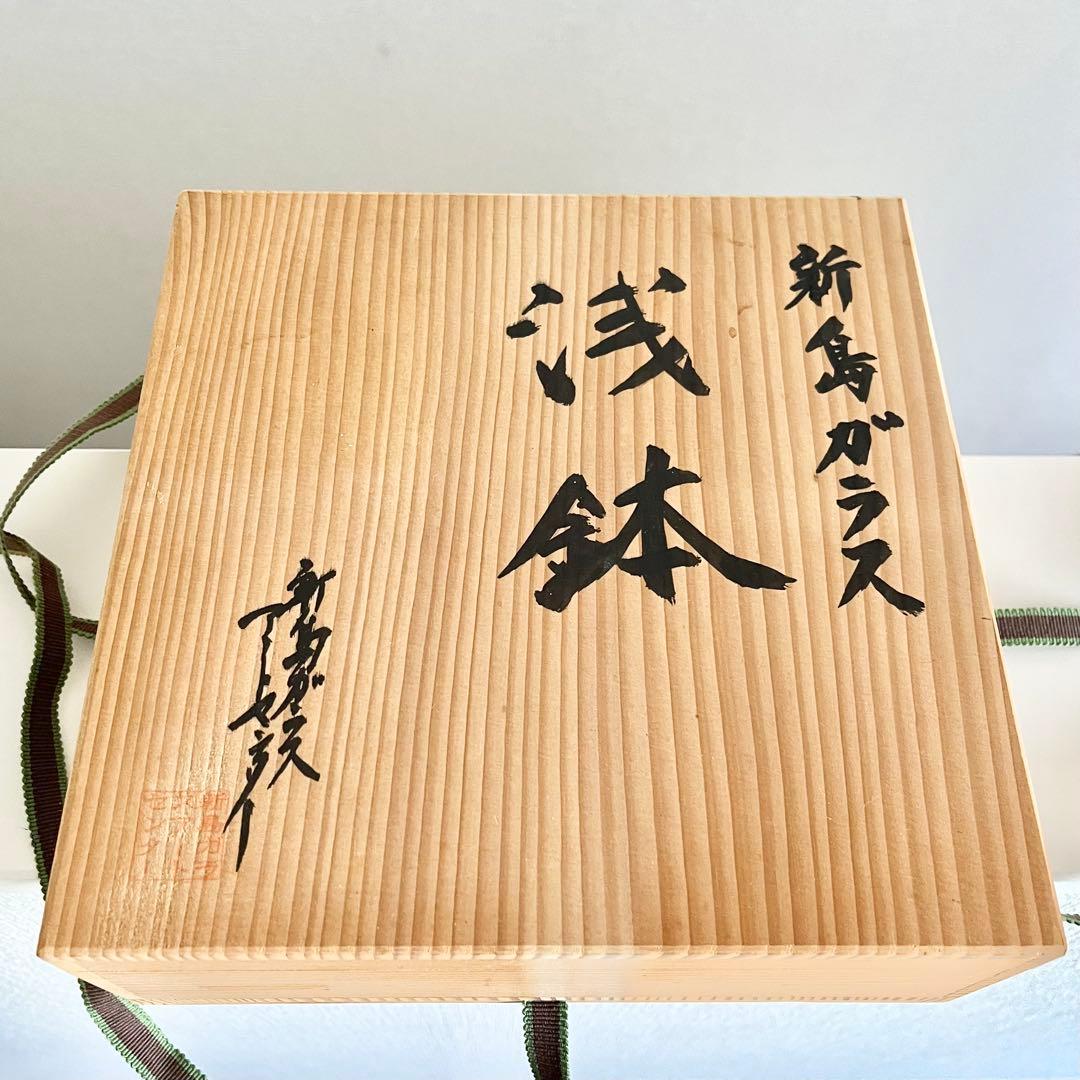 新島ガラス
浅鉢
新島ガラス
アートセンター